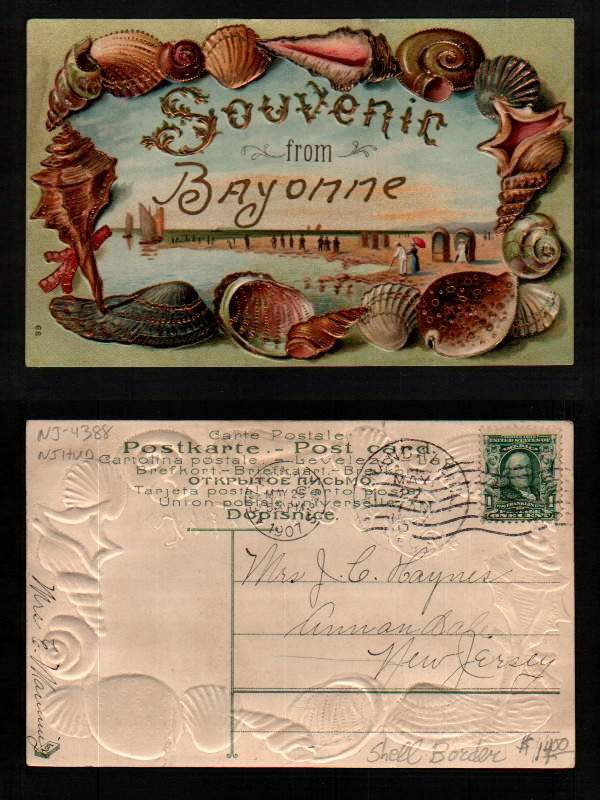 Souvenir
from
Bayonne
68
NJ-4388
NJHUD
Carte Postale.
Postkarte. - Post card.
Cartolina postale. - Levelező-Lap
Brefkort - Briefkaart - Brev
ОТКРЫТОЕ ПИСЬМО.
Tarjeta postal - Carto postal
Union postale universelle.
Dopisnice.
MAY 25
1907
MAY
AM
UNITED STATES OF
AMERICA
FRANKLIN
ONE CENT
Mrs J. C. Haynes
Annandale
New Jersey
Mrs E. Manning
Shell Border $14.00